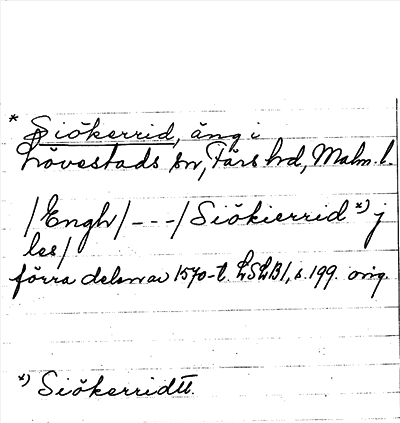 * Siökerrid, äng i
Lövestads sn, Färs hd, Malm. l.
/Engh/ - - - / Siökierrid *) j
les/
förra delen av 1570-t. LSLB1, s. 199. orig.
*) Siökerridtt.